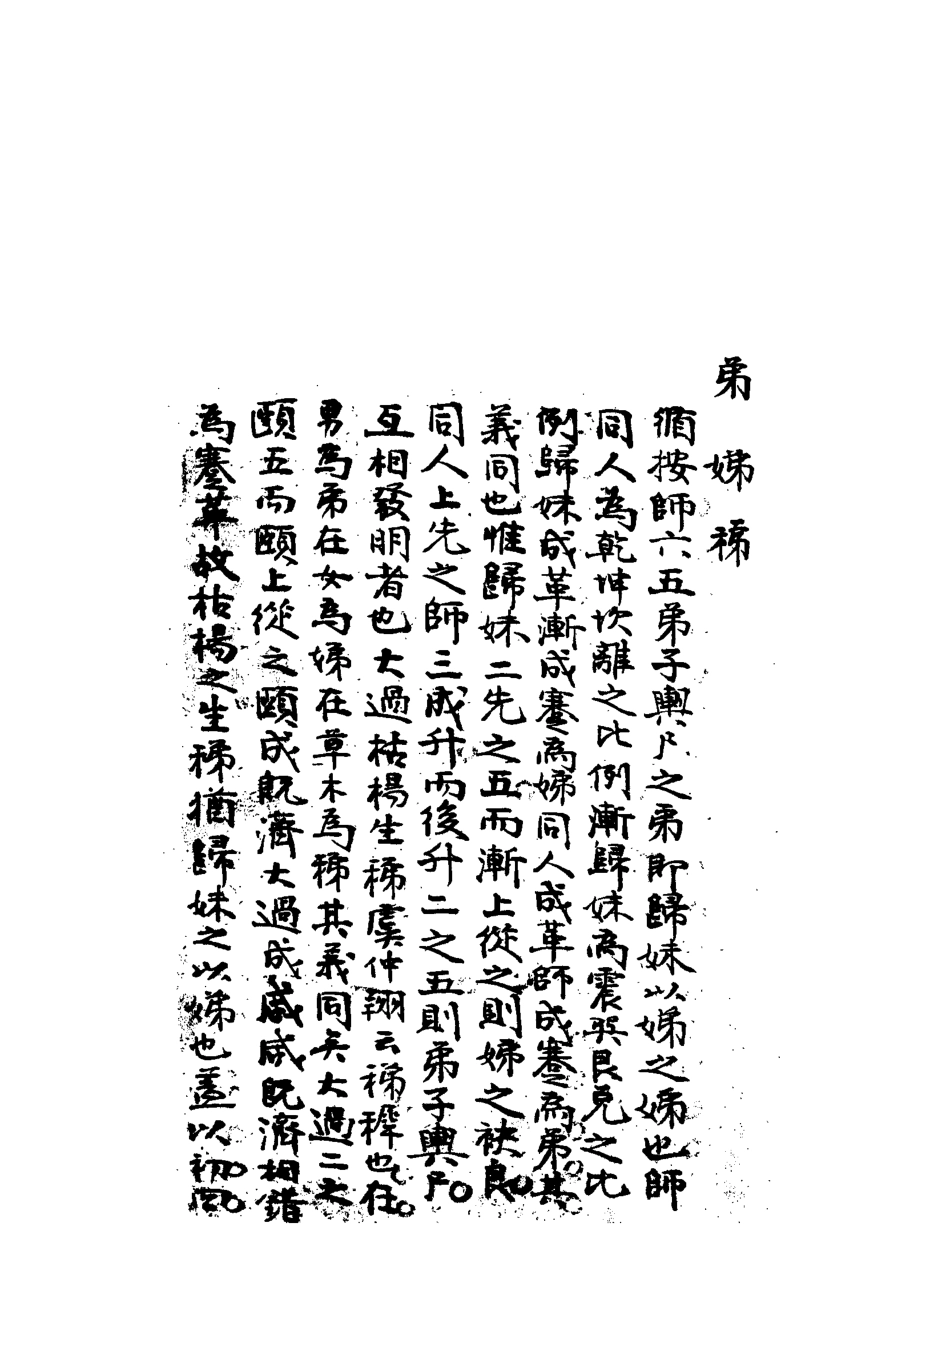 弟 娣 稊
循按師六五弟子輿尸之弟即歸妹以娣之娣也師
同人為乾坤坎離之比例漸歸妹為震巽艮兌之比
例歸妹成革漸成蹇為娣同人成革師成蹇為弟其
義同也惟歸妹二先之五而漸上從之則娣之袂良
同人上先之師三成升而後升二之五則弟子輿尸
互相發明者也大過枯楊生稊虞仲翔云稊穉也在
男為弟在女為娣在草木為稊其義同矣大過二之
頤五而頤上從之頤成既濟大過成咸咸既濟相錯
為蹇革故枯楊之生稊猶歸妹之以娣也蓋以初四